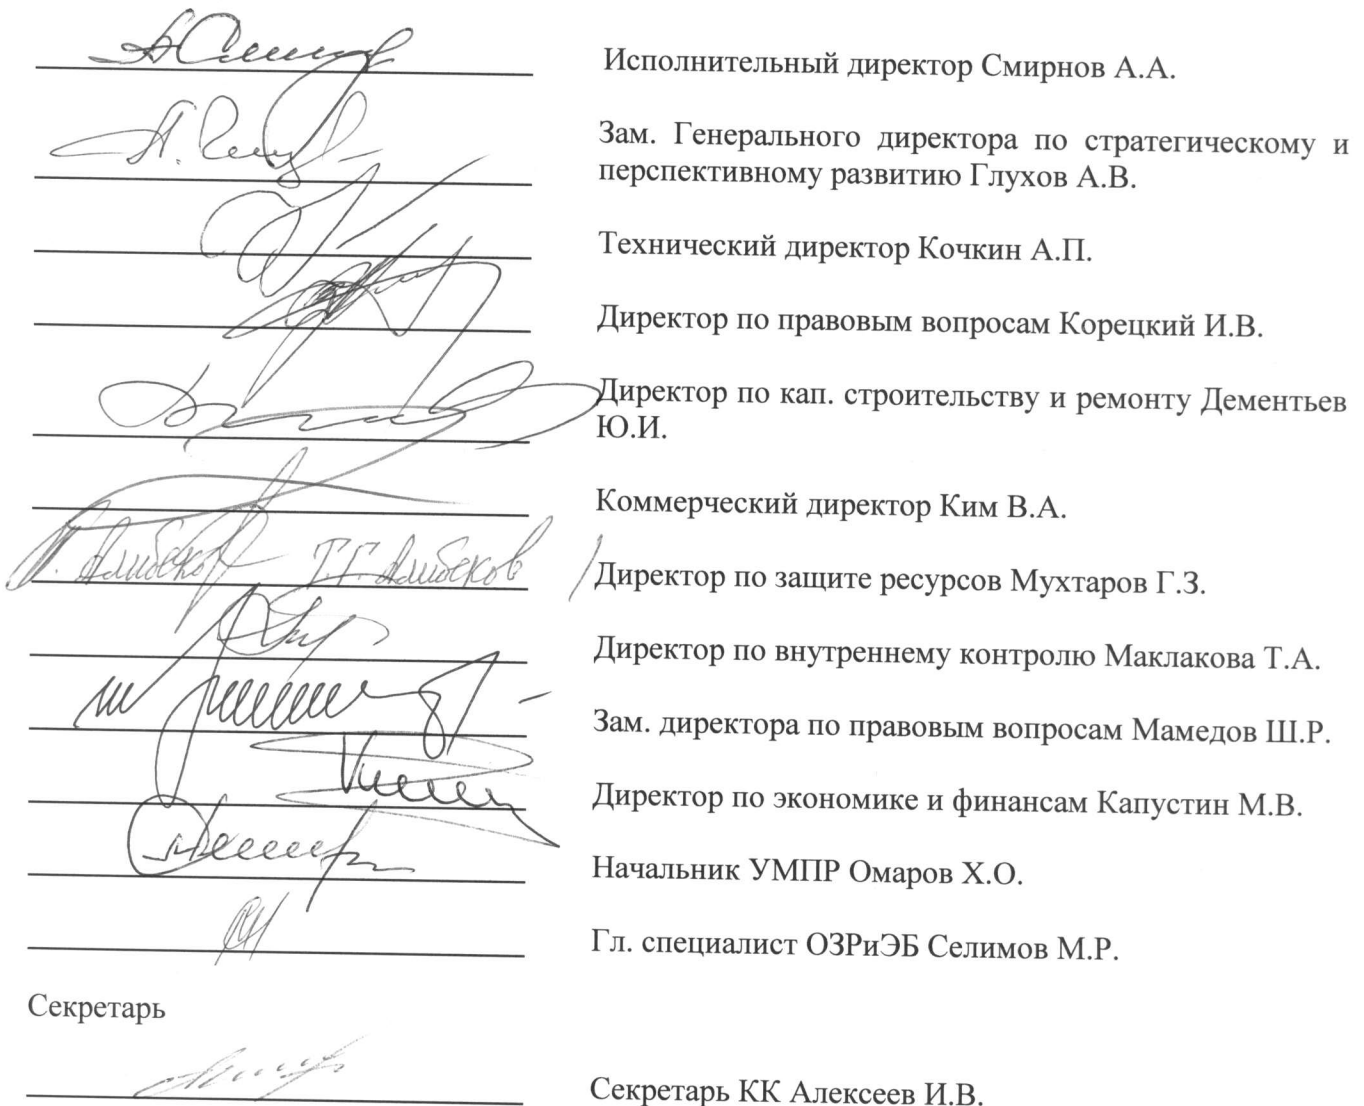 Исполнительный директор Смирнов А.А.
Зам. Генерального директора по стратегическому и
перспективному развитию Глухов А.В.
Технический директор Кочкин А.П.
Директор по правовым вопросам Корецкий И.В.
Директор по кап. строительству и ремонту Дементьев
Ю.И.
Коммерческий директор Ким В.А.
Алибеков Г.Г. Алибеков / Директор по защите ресурсов Мухтаров Г.З.
Директор по внутреннему контролю Маклакова Т.А.
Зам. директора по правовым вопросам Мамедов Ш.Р.
Директор по экономике и финансам Капустин М.В.
Начальник УМПР Омаров Х.О.
Гл. специалист ОЗРиЭБ Селимов М.Р.
Секретарь
Секретарь КК Алексеев И.В.